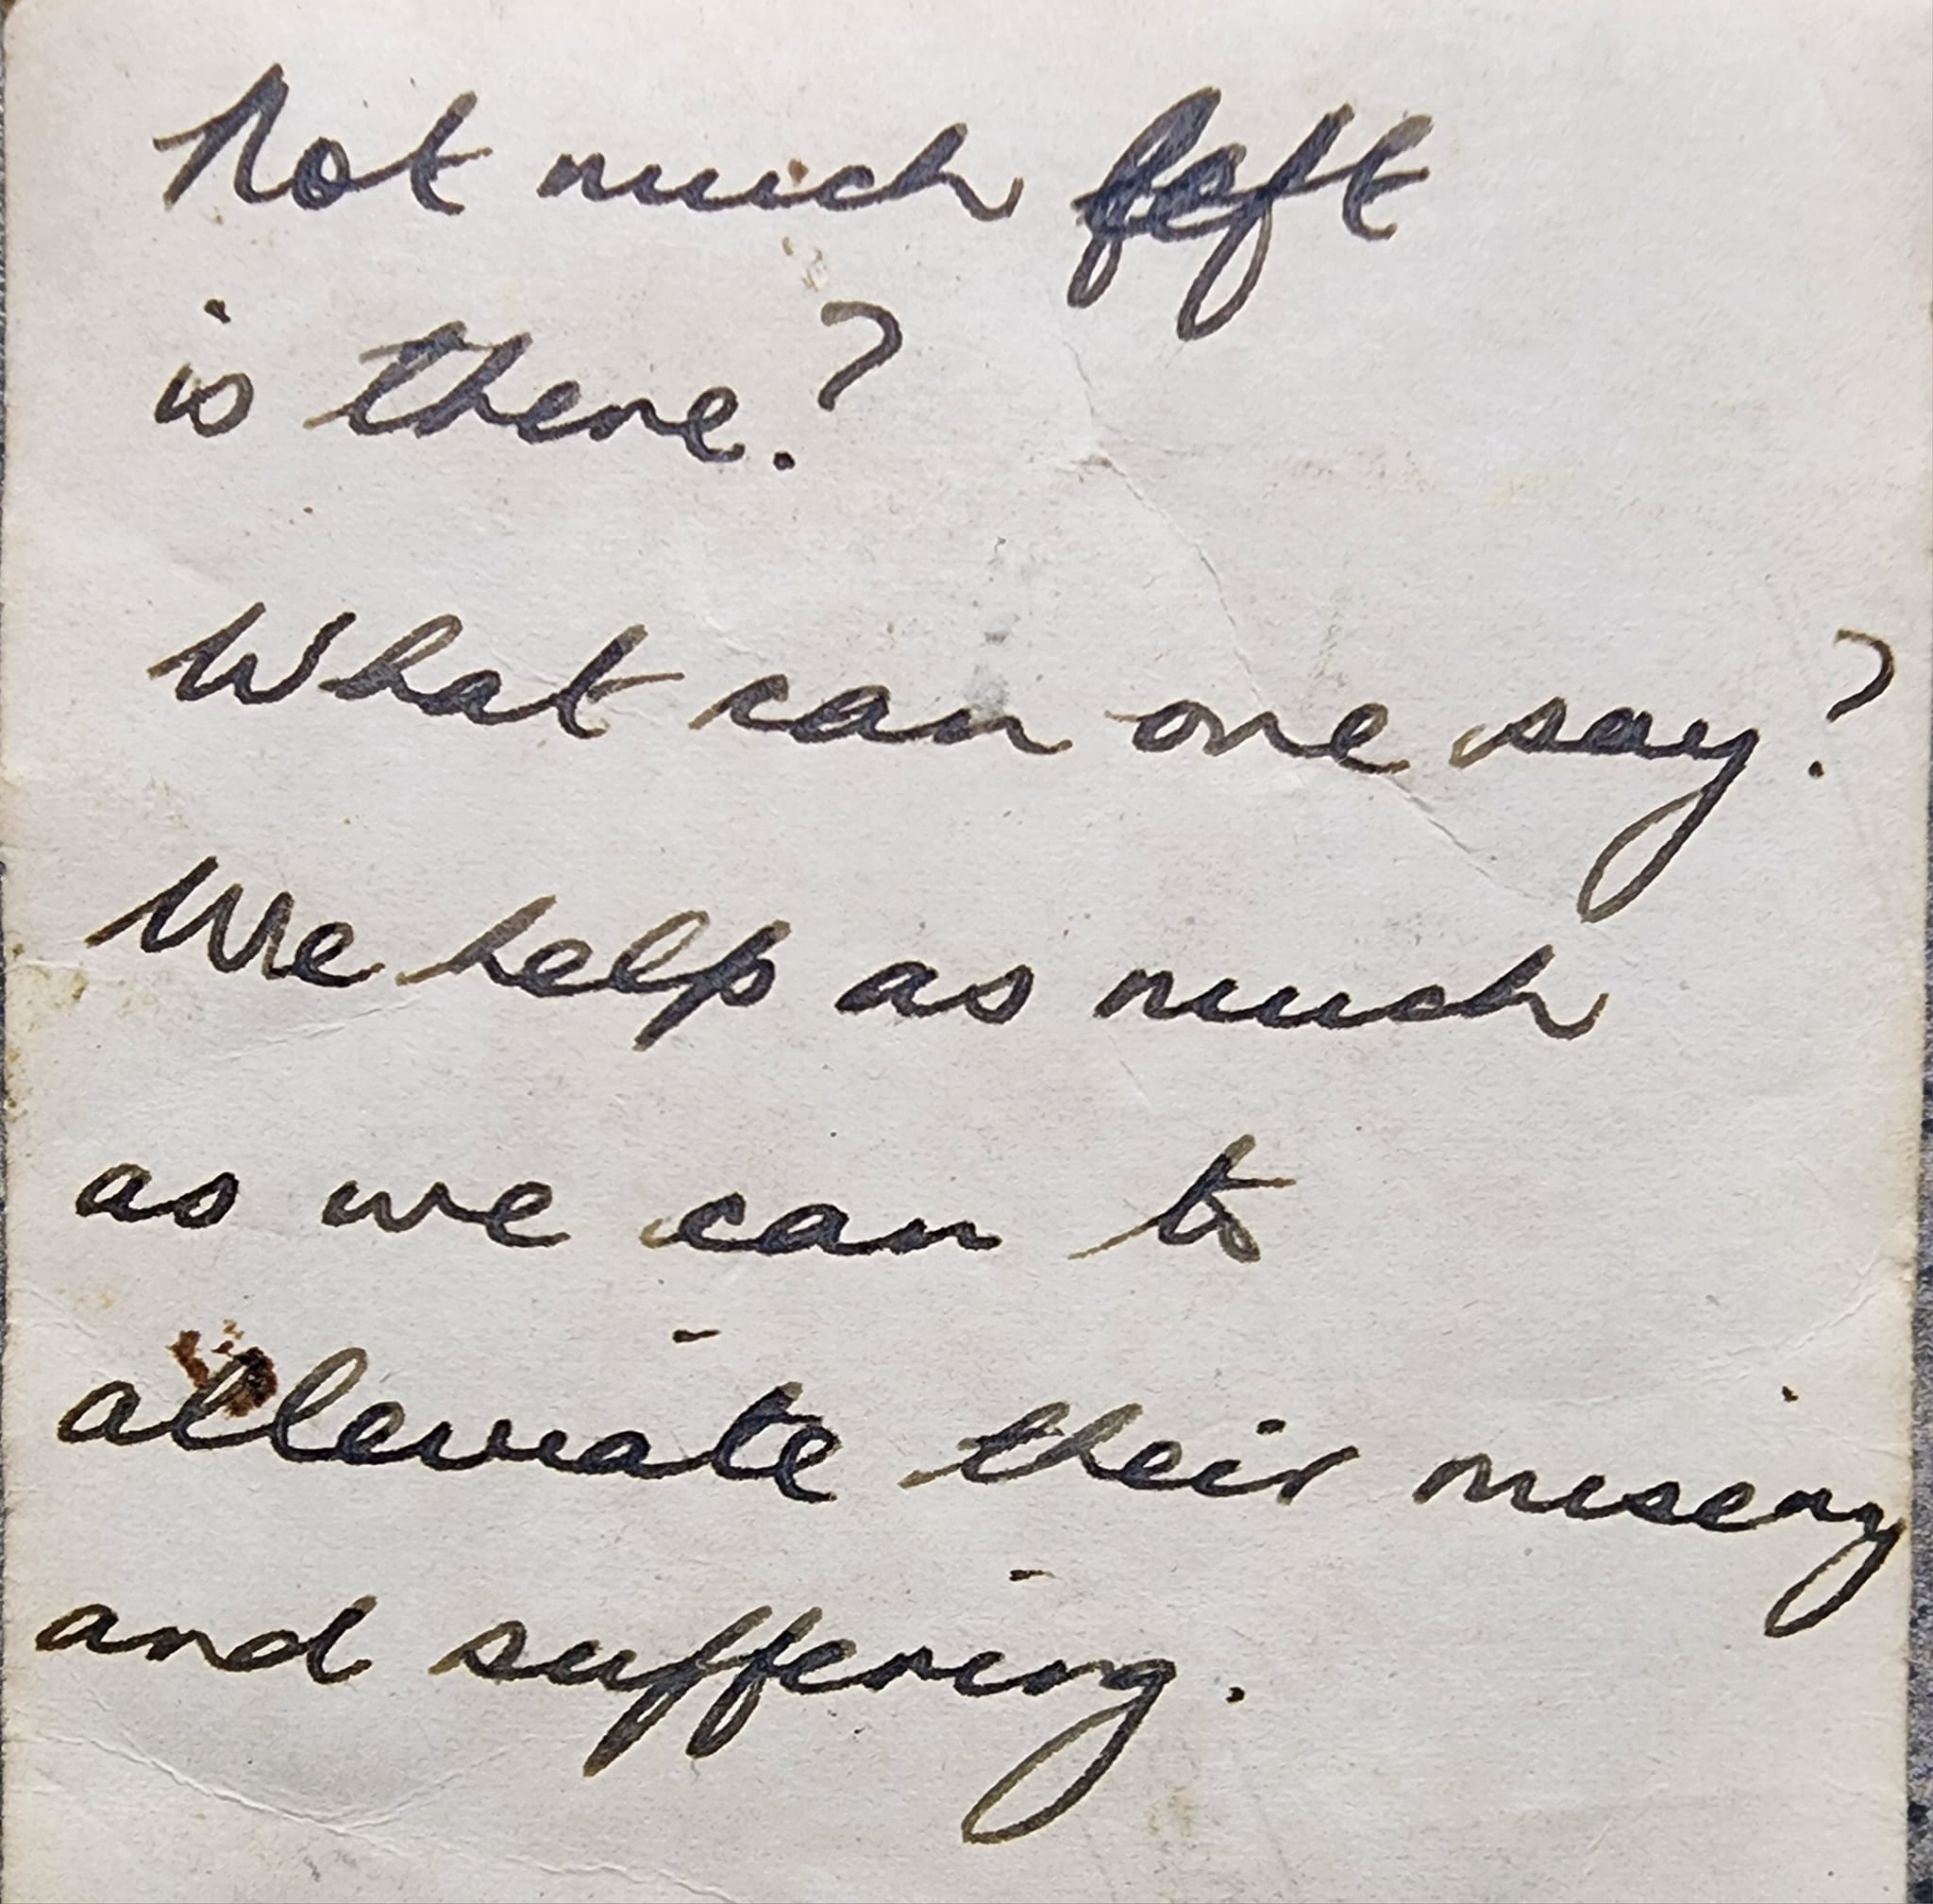 Not much left
is there?
What can one say?
We help as much
as we can to
alleviate their misery
and suffering.